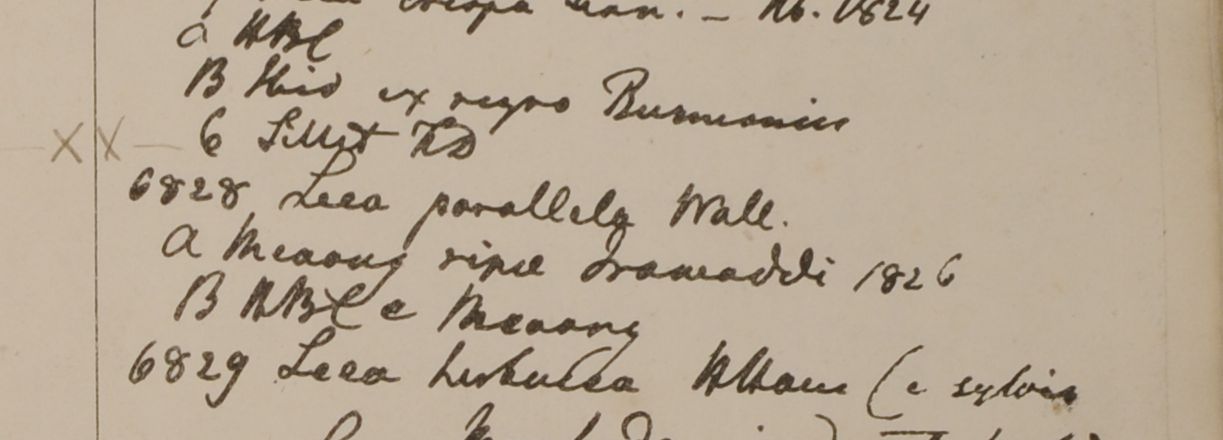 crispa Linn. — Hb. 1824
a HBC
B Ibid ex regno Burmanico
6 Sillet FD
6828 Leea parallela Wall.
a Meaong ripae Irawaddi 1826
B HBC e Meaong
6829 Leea herbacea HHam (e sylvis